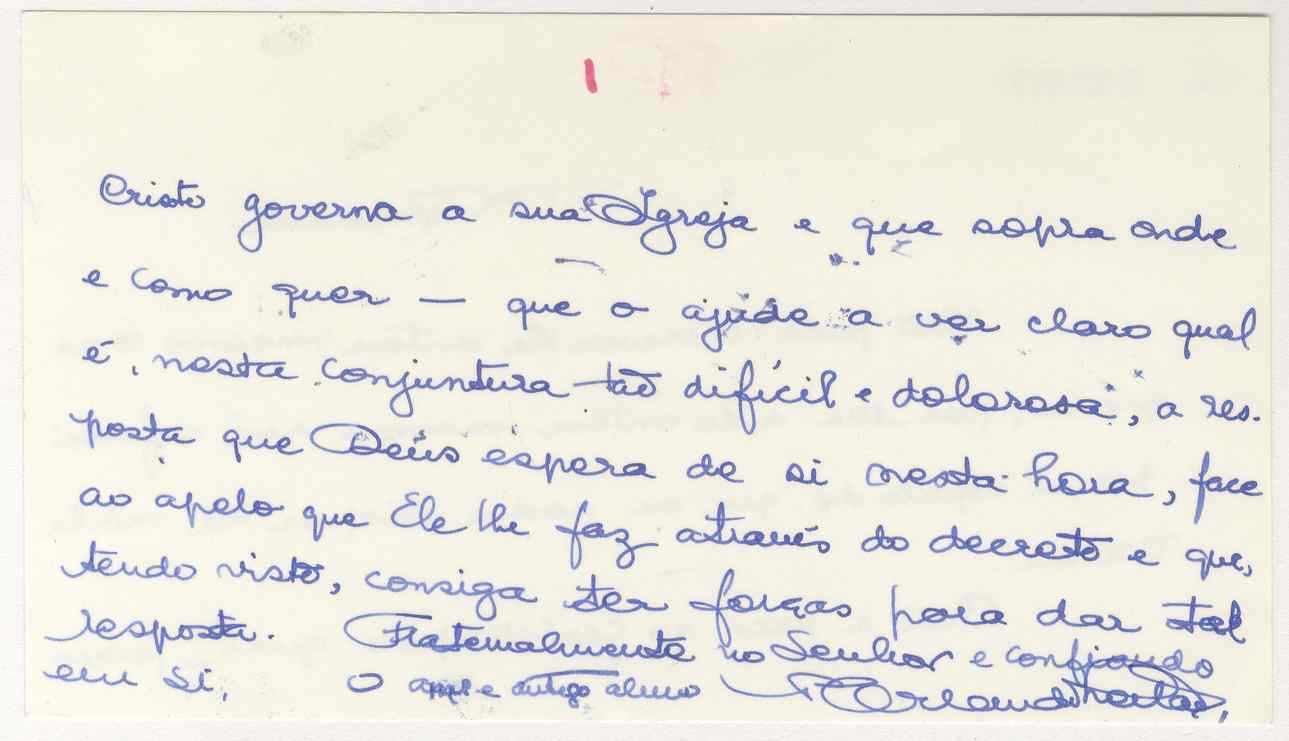 Cristo governa a sua Igreja e que sopra onde
e como quer — que o ajude a ver claro qual
é, nesta conjuntura tão difícil e dolorosa, a res-
posta que Deus espera de si nesta hora, face
ao apelo que Ele lhe faz através do decreto e que,
tendo visto, consiga ter forças para dar tal
resposta. Fraternalmente no Senhor e confiando
em si, O amº e antigo aluno Orlando